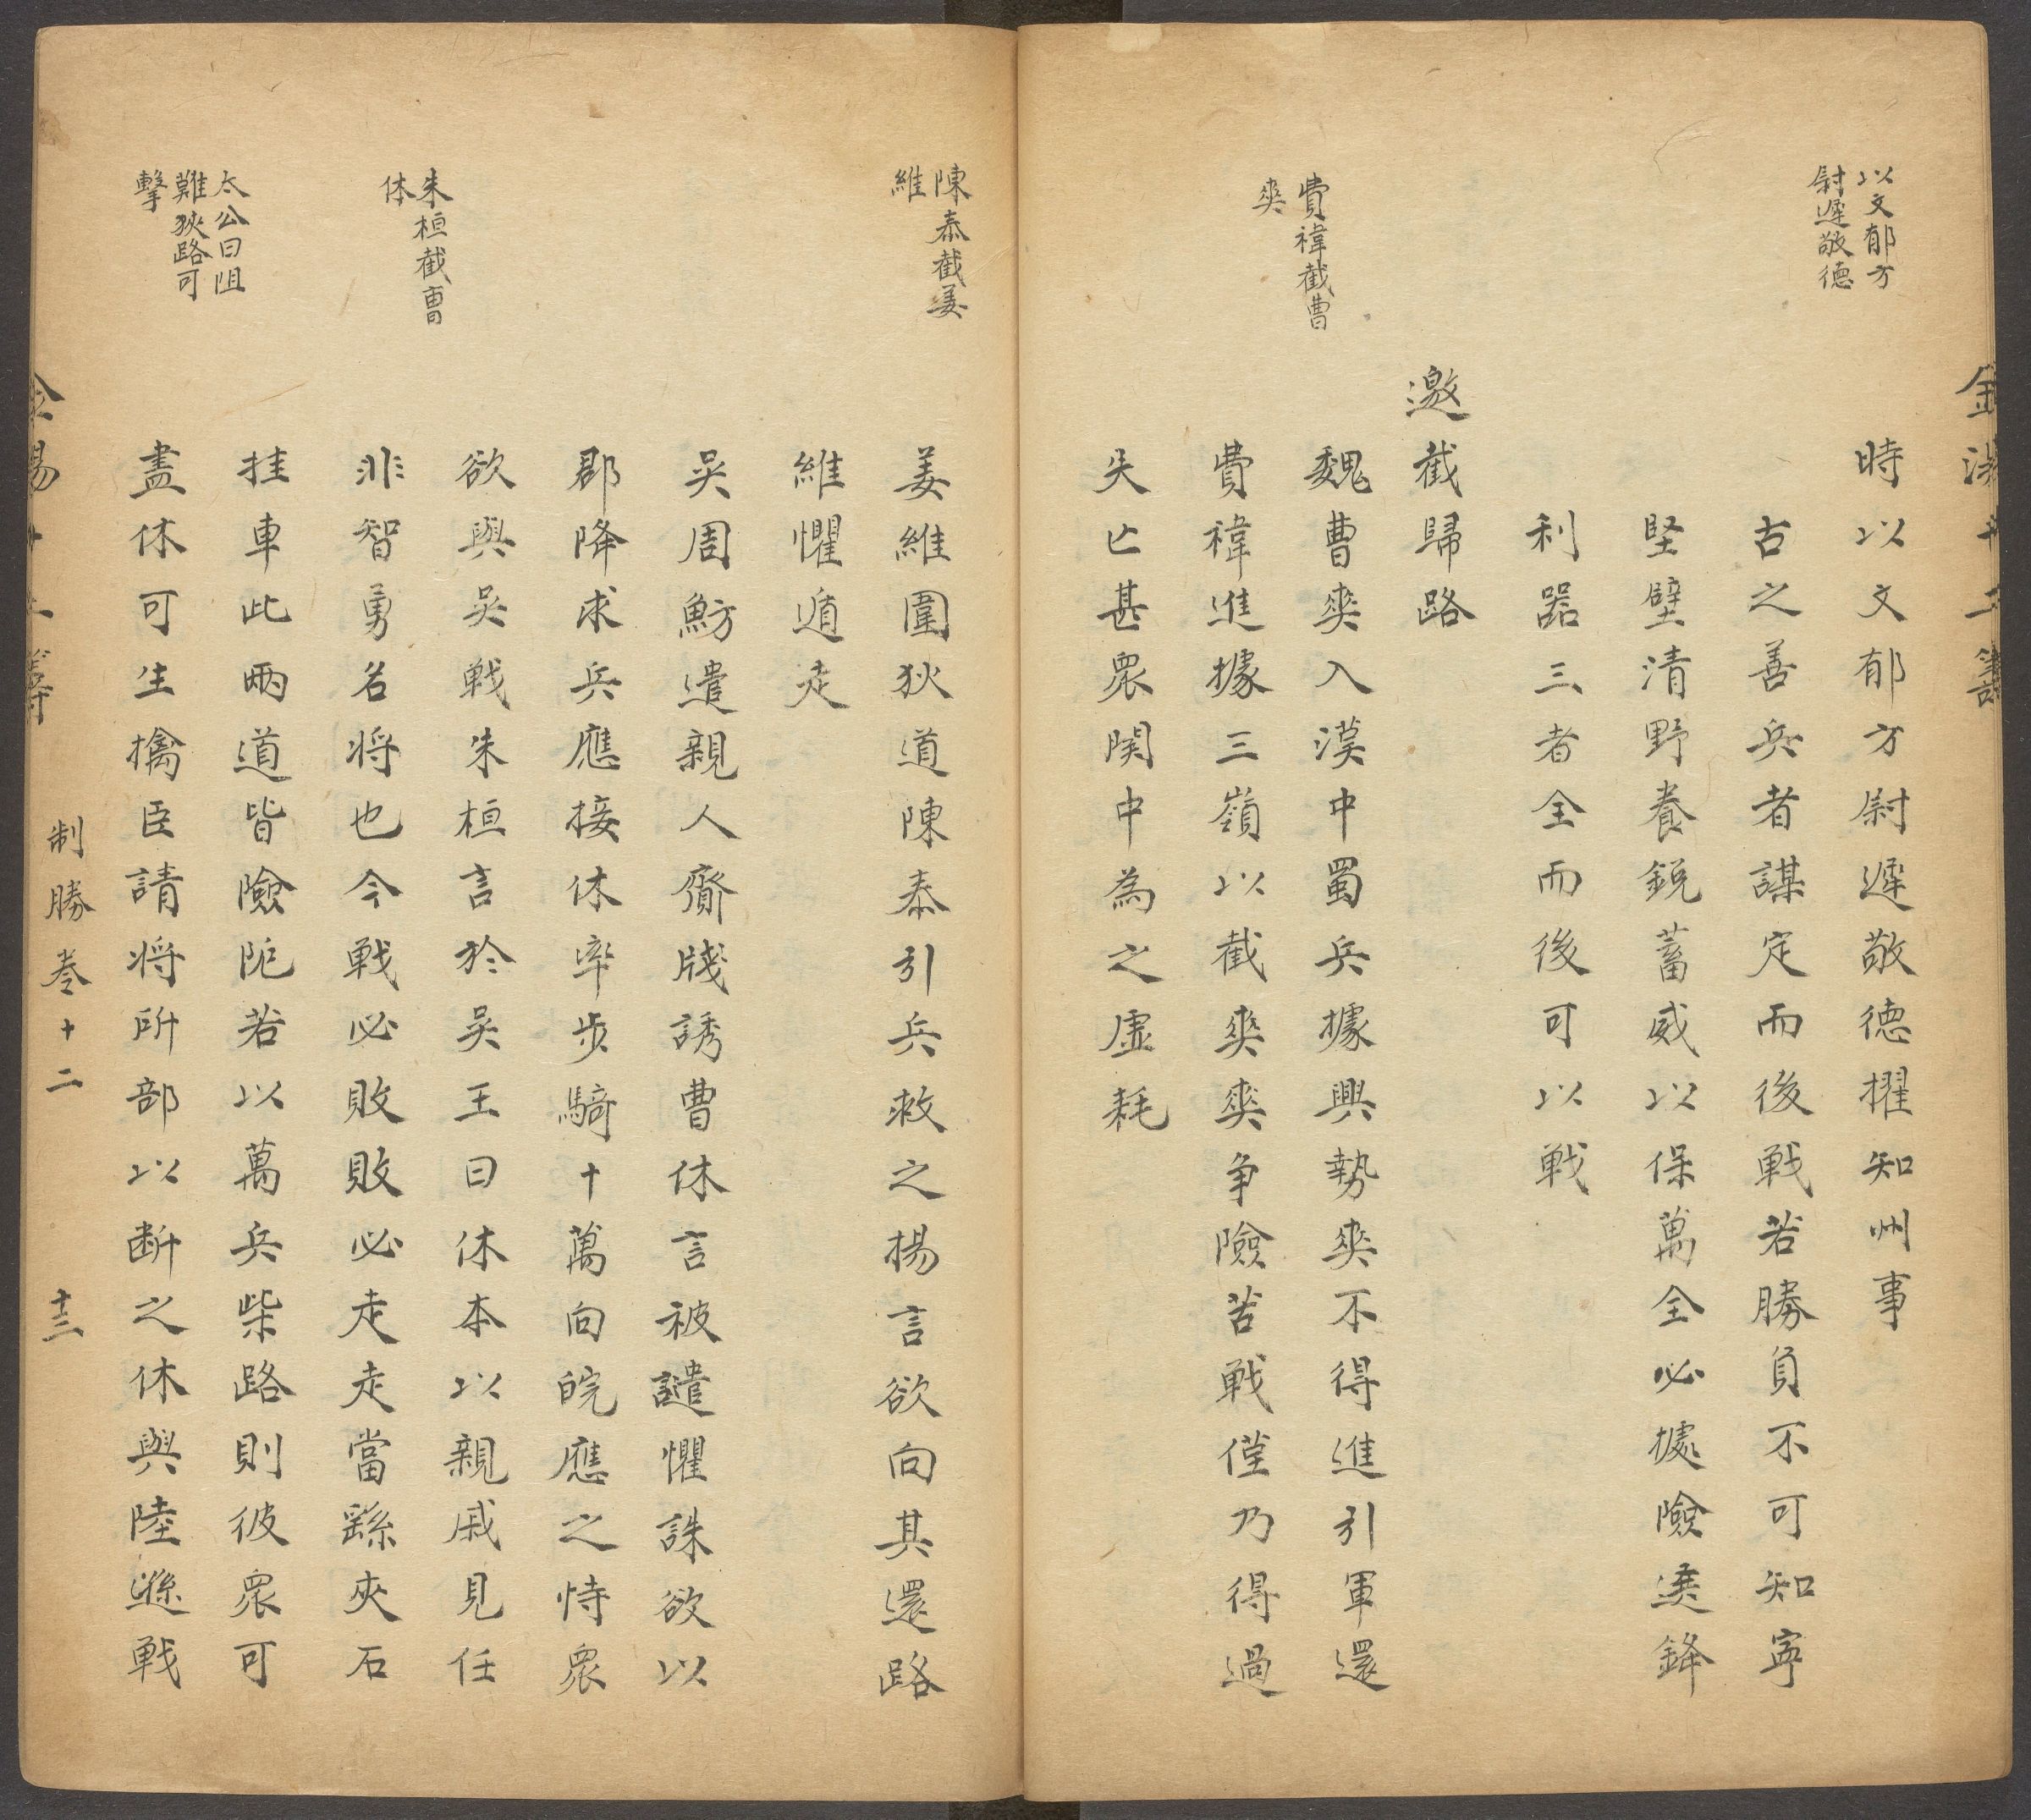 金湯十二籌
以文郁方
尉遲敬德
時以文郁方尉遲敬德擢知州事
古之善兵者謀定而後戰若勝負不可知寧
堅壁清野養銳蓄威以保萬全必據險選鋒
利器三者全而後可以戰
邀截歸路
費禕截曹
爽
魏曹爽入漢中蜀兵據興勢爽不得進引軍還
費禕進據三嶺以截爽爽争險苦戰僅乃得過
失亡甚眾関中為之虛耗
陳泰截姜
維
姜維圍狄道陳泰引兵救之揚言欲向其還路
維懼遁走
吳周魴遣親人齎牋誘曹休言被譴懼誅欲以
郡降求兵應接休率步騎十萬向皖應之恃眾
朱桓截曹
休
欲與吳戰朱桓言於吳王曰休本以親戚見任
非智勇名将也今戰必敗敗必走走當繇夾石
太公曰阻
難狹路可
擊
挂車此兩道皆險阨若以萬兵柴路則彼眾可
盡休可生擒臣請将所部以断之休與陸遜戰
金湯十二籌
制勝卷十二
十三